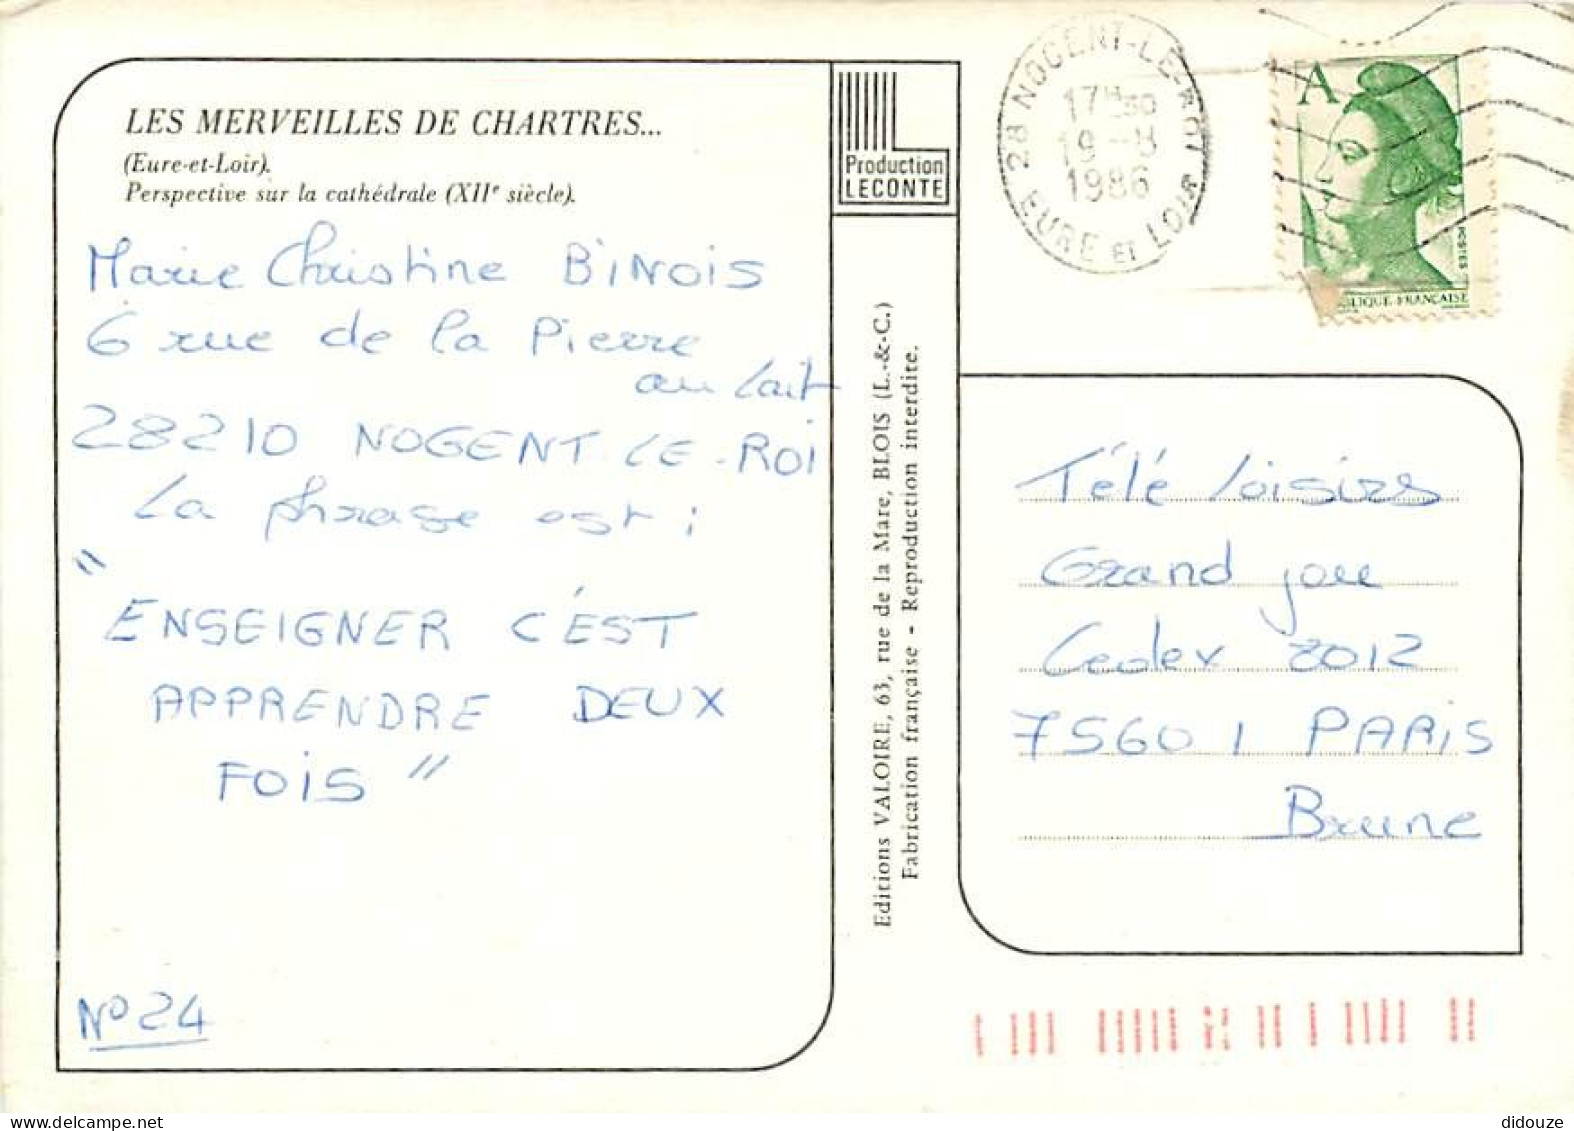 LES MERVEILLES DE CHARTRES...
(Eure-et-Loir).
Perspective sur la cathédrale (XIIe siècle).
Marie Christine BiNOIS
6 rue de la Pierre
au Lait
28210 NOGENT-LE-ROI
La phrase est :
"
ENSEIGNER C'EST
APPRENDRE DEUX
FOIS "
N° 24
Production
LECONTE
Editions VALOIRE, 63, rue de la Mare, BLOIS (L.-&-C.)
Fabrication française - Reproduction interdite.
28 NOGENT-LE-ROI
17H30
19 -8
1986
EURE ET LOIR
A
POSTES
BLIQUE-FRANÇAISE
Télé Loisirs
Grand jeu
Cedex 2012
75601 PARIS
Brune
didouze